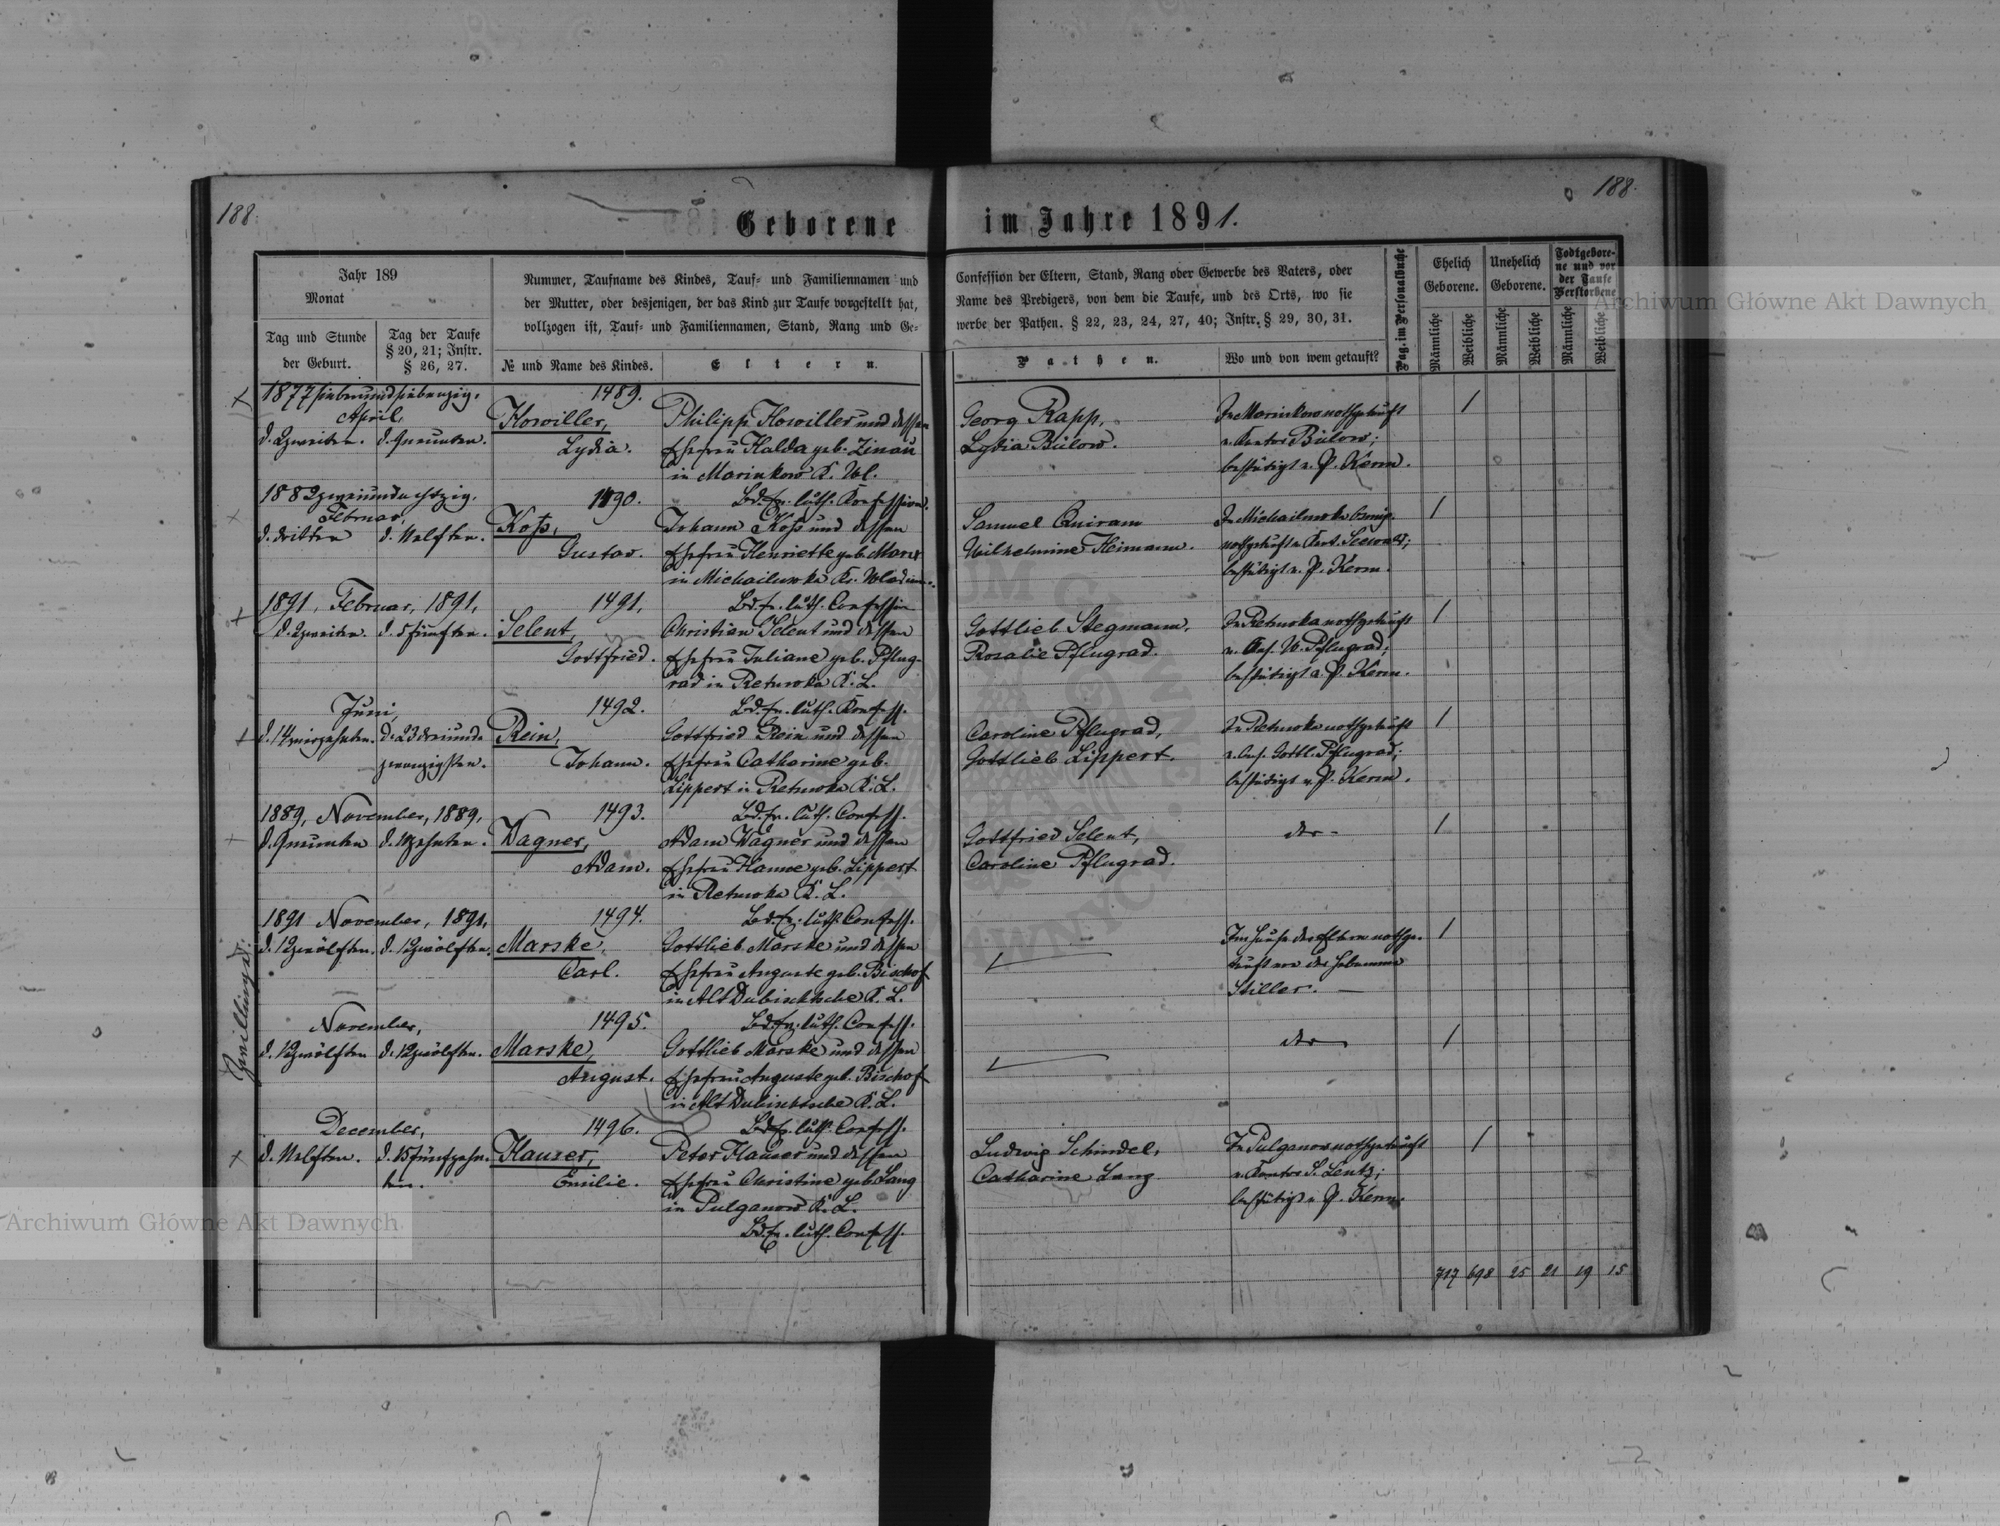 188.
188.
Geborene im Jahre 1891.
Jahr 189
Monat
Tag und Stunde
der Geburt.
Tag der Taufe
§ 20, 21; Instr.
§ 26, 27.
Nummer, Taufname des Kindes, Tauf- und Familiennamen und
der Mutter, oder desjenigen, der das Kind zur Taufe vorgestellt hat,
vollzogen ist, Tauf- und Familiennamen, Stand, Rang und Ge-
№ und Name des Kindes.
Eltern.
Confession der Eltern, Stand, Rang oder Gewerbe des Vaters, oder
Name des Predigers, von dem die Taufe, und des Orts, wo sie
werbe der Pathen. § 22, 23, 24, 27, 40; Instr. § 29, 30, 31.
Pathen.
Wo und von wem getauft?
Pag. im Personalbuche
Ehelich
Geborene.
Unehelich
Geborene.
Todtgebore-
ne und vor
der Taufe
Verstorbene
Männliche
Weibliche
Männliche
Weibliche
Männliche
Weibliche
1877 siebenundsiebenzig.
April,
d. 2 zweiten. d. 9 neunten.
1489.
Howiller,
Lydia.
Philipp Howiller und dessen
Ehefrau Halda geb. Zinau
in Marinkow K. Wl.
Bd. Ev. luth. Confession.
Georg Rapp,
Lydia Bülow.
In Marinkow nothgetauft
v. Kantor Bülow;
bestätigt v. P. Kerm.
1
1882 zweiundachtzig.
Februar,
d. 3 dritten d. 11 elften.
1490.
Koß,
Gustav.
Johann Koß und dessen
Ehefrau Henriette geb. Marx
in Michailuwka Kr. Wladim.
Bd. Ev. luth. Confession
Samuel Quiram
Wilhelmine Heimann.
In Michailuwka
nothgetauft v. Kant. Seewald;
bestätigt v. P. Kerm.
1
1891, Februar, 1891,
d. 2 zweiten. d. 5 fünften.
1491,
Selent,
Gottfried.
Christian Selent und dessen
Ehefrau Juliane geb. Pflug-
rad in Retuwka K. L.
Bd. Ev. luth. Confess.
Gottlieb Stegmann,
Rosalie Pflugrad.
In Retuwka nothgetauft
v. Ans. W. Pflugrad;
bestätigt v. P. Kerm.
1
Juni,
d. 14 vierzehnten. d. 23 dreiund-
zwanzigsten.
1492.
Rein,
Johann.
Gottfried Rein und dessen
Ehefrau Catharine geb.
Lippert in Retuwka K. L.
Bd. Ev. luth. Confess.
Caroline Pflugrad,
Gottlieb Lippert.
In Retuwka nothgetauft
v. Ans. Gottl. Pflugrad;
bestätigt v. P. Kerm.
1
1889, November, 1889,
d. 9 neunten d. 10 zehnten.
1493.
Wagner,
Adam.
Adam Wagner und dessen
Ehefrau Hanne geb. Lippert
in Retuwka K. L.
Bd. Ev. luth. Confess.
Gottfried Selent,
Caroline Pflugrad.
dto -
1
Zwillinge
1891 November, 1891,
d. 12 zwölften. d. 12 zwölften.
1494.
Marske,
Carl.
Gottlieb Marske und dessen
Ehefrau Auguste geb. Bischof
in Alt Dubischtsche K. L.
Bd. Ev. luth. Confess.
Im Hause der Eltern nothge-
tauft von der Hebamme
Stiller. —
1
November,
d. 12 zwölften d. 12 zwölften.
1495.
Marske,
August.
Gottlieb Marske und dessen
Ehefrau Auguste geb. Bischof
in Alt Dubischtsche K. L.
Bd. Ev. luth. Confess.
dto
1
December,
d. 11 elften. d. 15 fünfzehn-
ten.
1496.
Hauser,
Emilie.
Peter Hauser und dessen
Ehefrau Christine geb. Lang
in Pulganow K. L.
Bd. Ev. luth. Confess.
Ludwig Schindel,
Catharine Lang
In Pulganow nothgetauft
v. Kantor S. Lentz;
bestätigt v. P. Kerm.
1
717 698 25 21 19 15
Archiwum Główne Akt Dawnych
Archiwum Główne Akt Dawnych